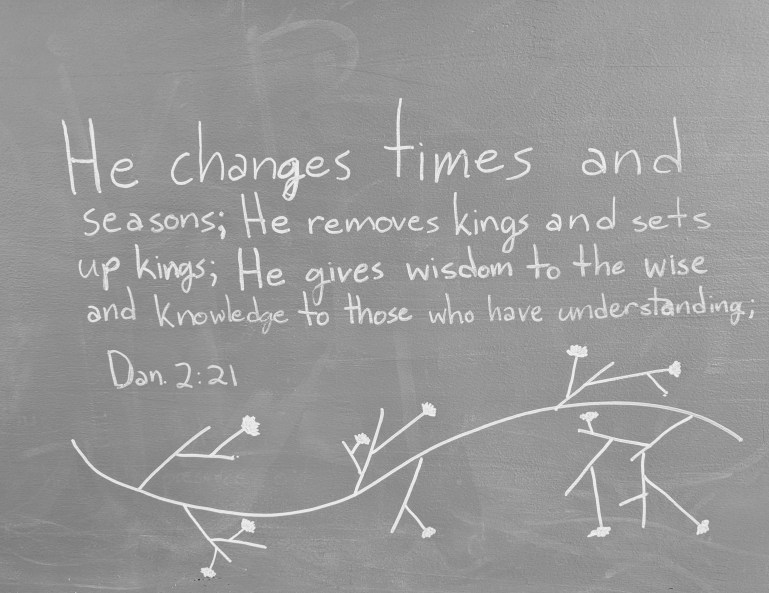 He changes times and
seasons; He removes kings and sets
up kings; He gives wisdom to the wise
and knowledge to those who have understanding;
Dan. 2:21